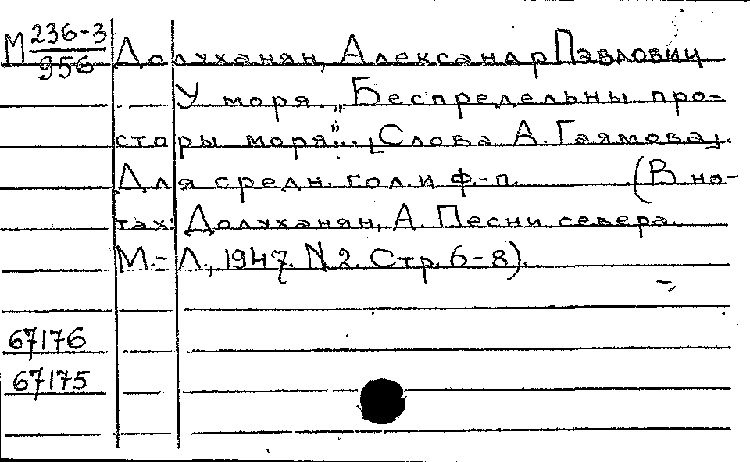 М 236-3 Долуханян, Александр Павлович
956
У моря. „Беспредельны про-
сторы моря“... [Слова А. Гаямова].
Для средн. гол. и ф-п. (В но-
тах: Долуханян, А. Песни севера.
М.-Л., 1947. N 2. Стр. 6-8).
67176
67175